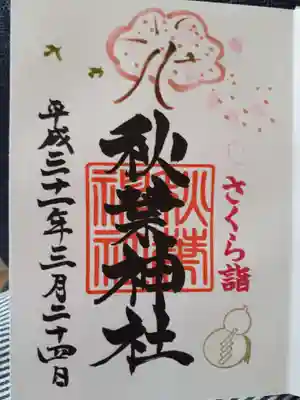 さくら詣
秋葉神社
平成三十一年三月二十四日